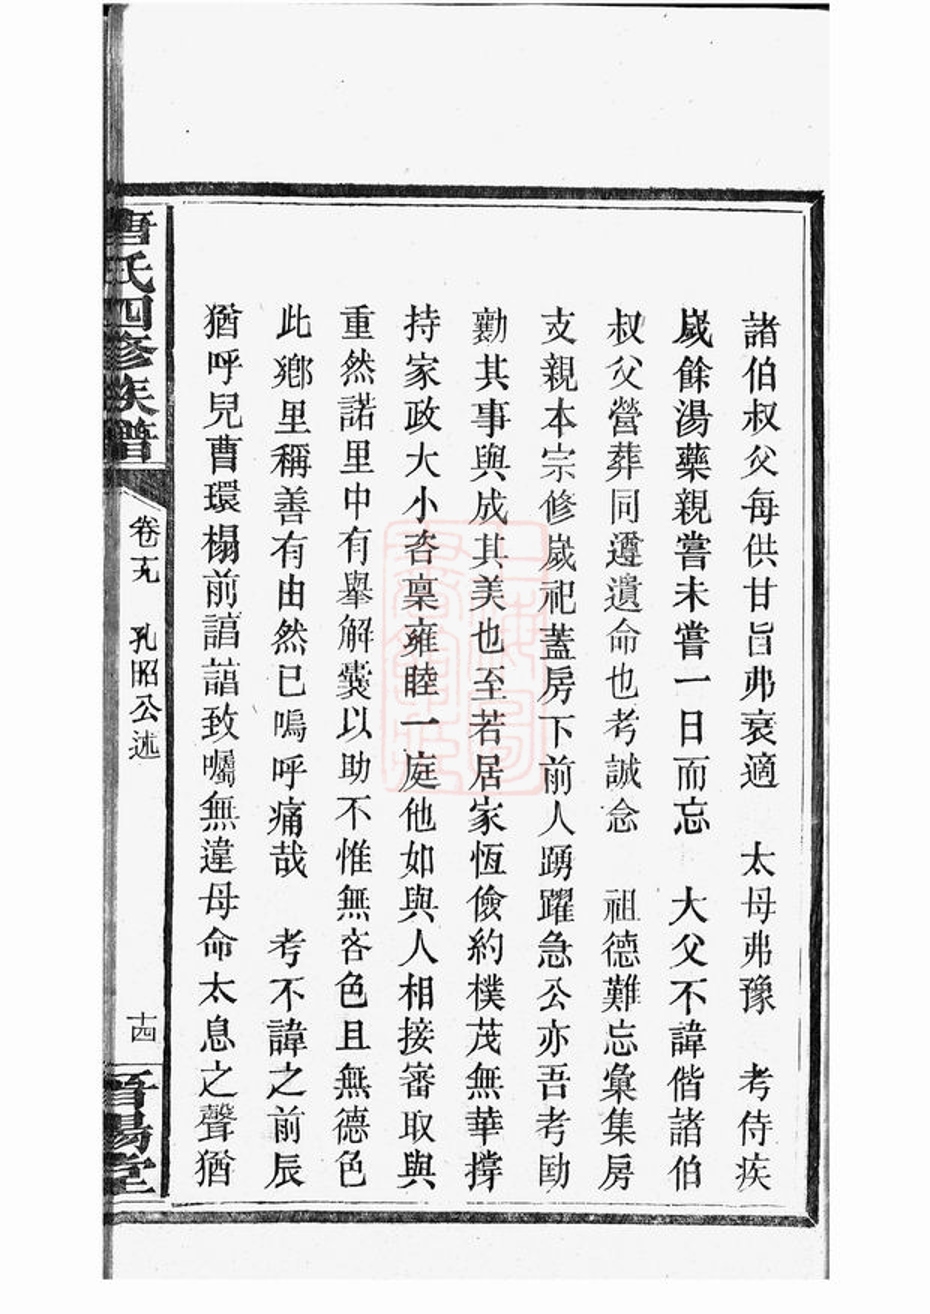 諸伯叔父每供甘旨弗衰適　太母弗豫　考侍疾
歲餘湯藥親嘗未嘗一日而忘　大父不諱偕諸伯
叔父營葬同遵遺命也考誠念　祖德難忘彙集房
支親本宗修歲祀蓋房下前人踴躍急公亦吾考勖
勷其事與成其美也至若居家恆儉約樸茂無華撐
持家政大小咨稟雍睦一庭他如與人相接審取與
重然諾里中有舉解囊以助不惟無吝色且無德色
此鄉里稱善有由然已嗚呼痛哉　考不諱之前辰
猶呼兒曹環榻前諄諄致囑無違母命太息之聲猶
唐氏四修族譜
卷十九　孔昭公述
十四
晉陽堂